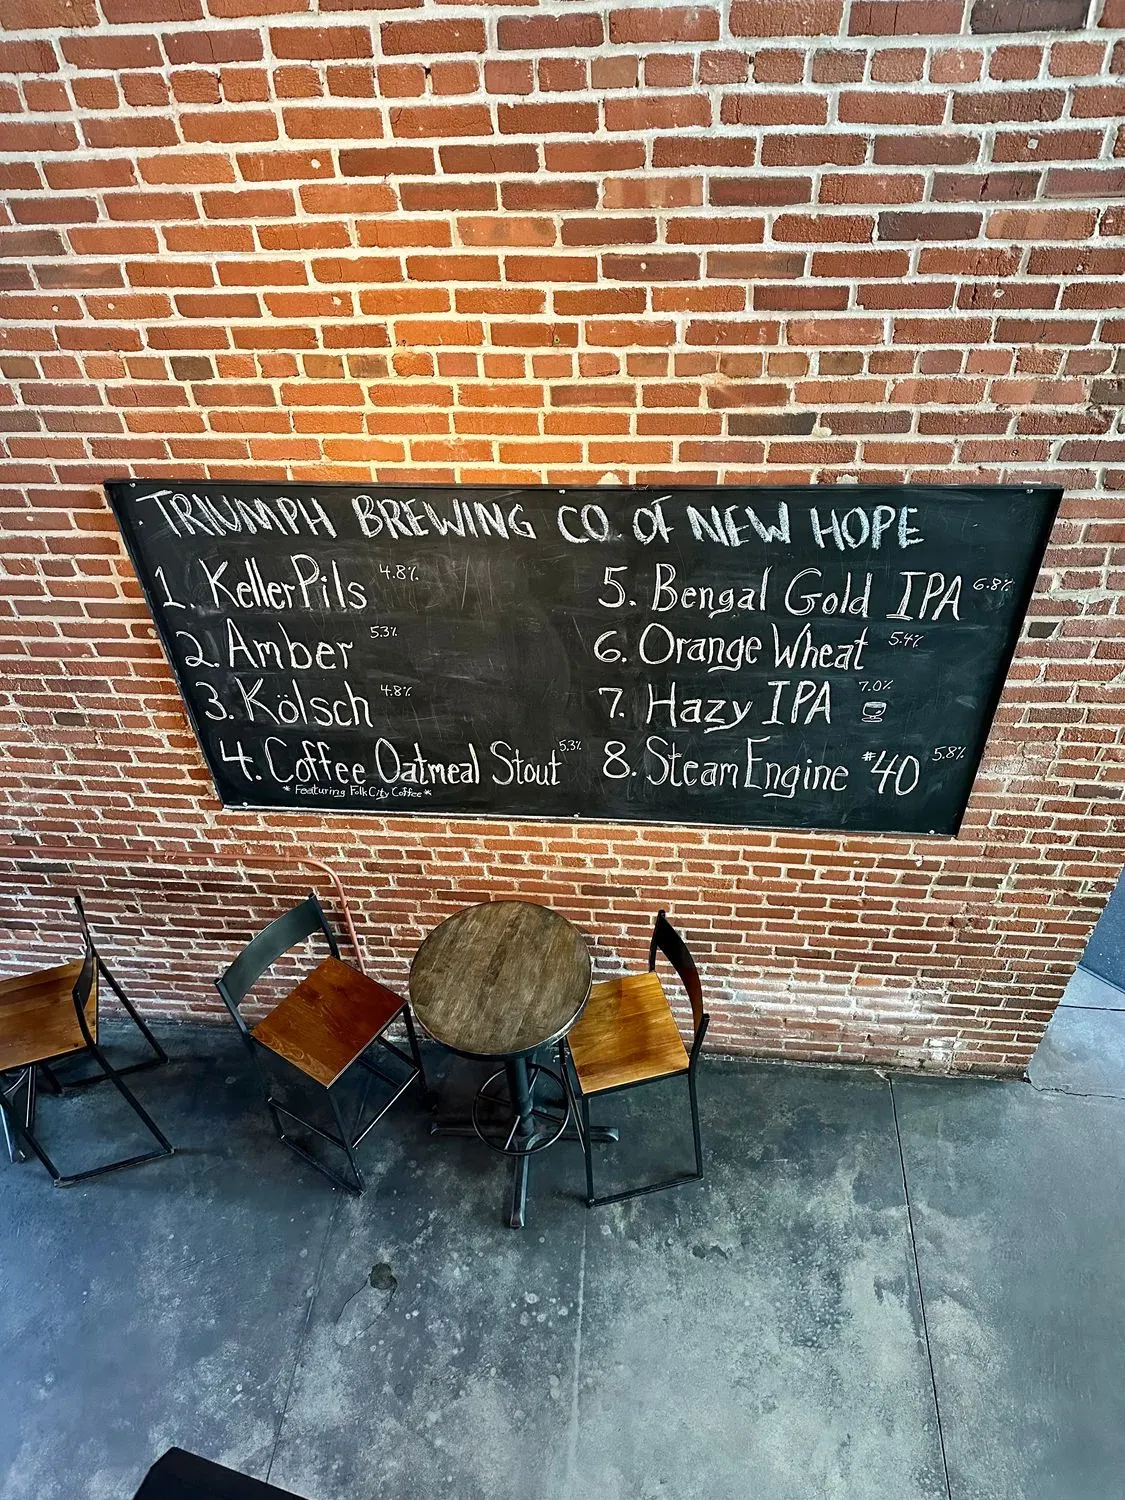 TRIUMPH BREWING CO. OF NEW HOPE
1. KellerPils 4.8%
2. Amber 5.3%
3. Kölsch 4.8%
4. Coffee Oatmeal Stout 5.3%
* Featuring FolkCity Coffee *
5. Bengal Gold IPA 6.8%
6. Orange Wheat 5.4%
7. Hazy IPA 7.0%
8. Steam Engine #40 5.8%